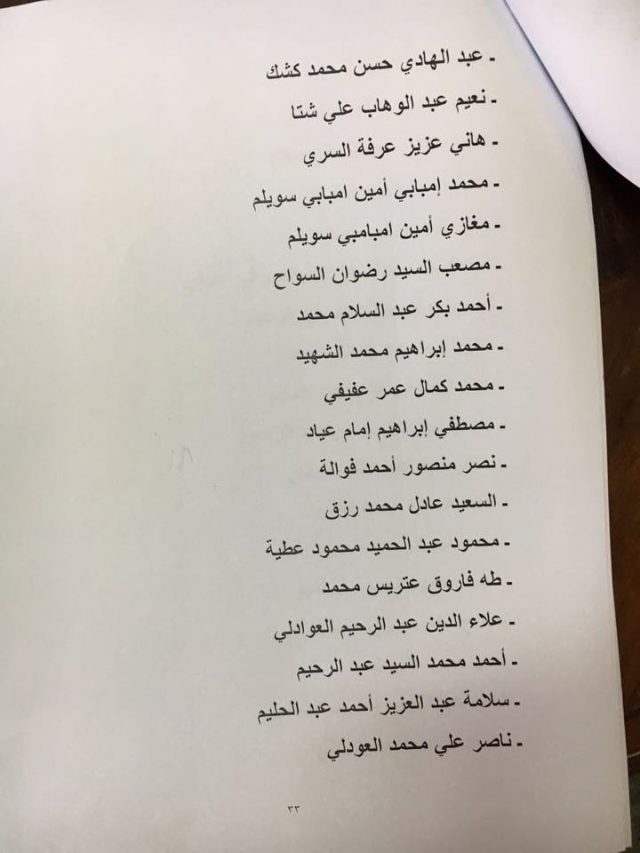 - عبد الهادي حسن محمد كشك
- نعيم عبد الوهاب علي شتا
- هاني عزيز عرفة السري
- محمد إمبابي أمين امبابي سويلم
- مغازي أمين امبامبي سويلم
- مصعب السيد رضوان السواح
- أحمد بكر عبد السلام محمد
- محمد إبراهيم محمد الشهيد
- محمد كمال عمر عفيفي
- مصطفي إبراهيم إمام عياد
- نصر منصور أحمد فوالة
- السعيد عادل محمد رزق
- محمود عبد الحميد محمود عطية
- طه فاروق عتريس محمد
- علاء الدين عبد الرحيم العوادلي
- أحمد محمد السيد عبد الرحيم
- سلامة عبد العزيز أحمد عبد الحليم
- ناصر علي محمد العودلي
٣٣